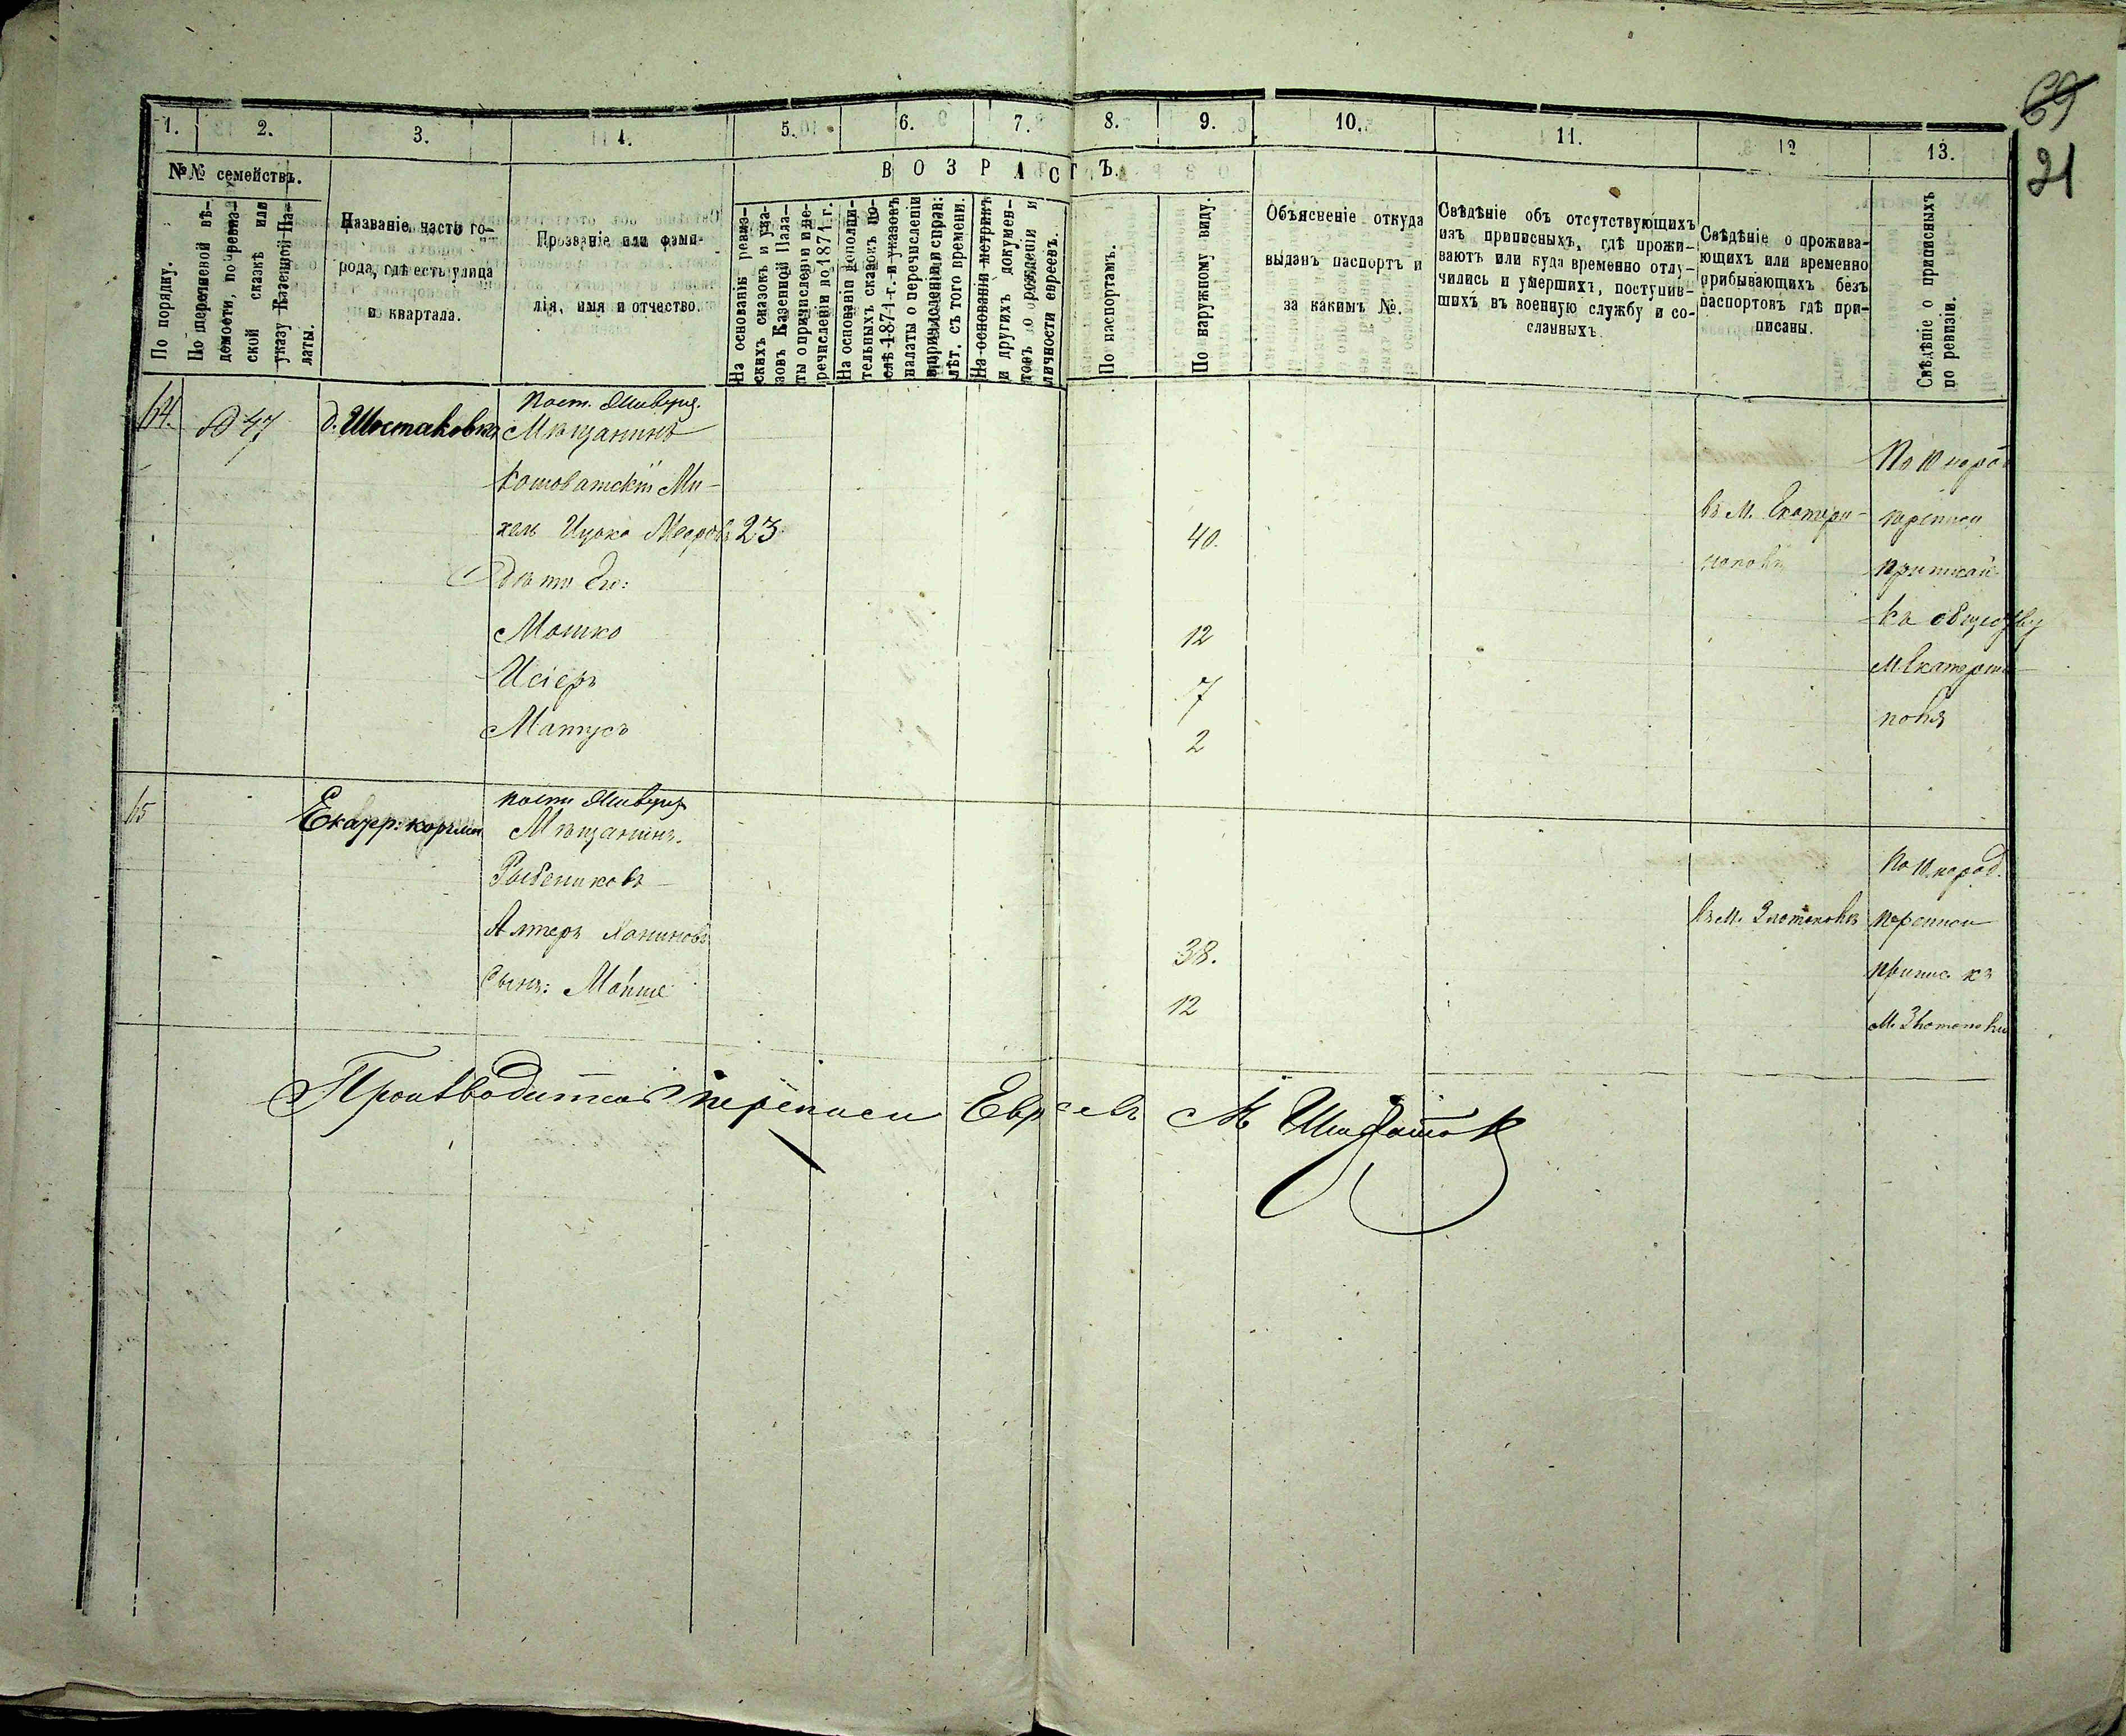 69
21
1. 2. 3. 4. 5. 6. 7. 8. 9. 10. 11. 12 13.
№№ семействъ.
В О З Р А С Т Ъ.
По порядку.
По перечневой вѣ-
домости, по ревиз-
ской сказкѣ или
указу Казенной Па-
латы.
Названіе, часть го-
рода, гдѣ есть улица
и квартала.
Прозваніе или фами-
лія, имя и отчество.
На основаніи ревиз-
скихъ сказокъ и ука-
зовъ Казенной Пала-
ты о причисленіи и пе-
речисленіи по 1874 г.
На основаніи дополни-
тельныхъ сказокъ по-
слѣ 1874 г. и указовъ
палаты о перечисленіи
лѣт. съ того времени.
На основаніи метрикъ
и другихъ докумен-
товъ о рожденіи и
личности евреевъ.
По паспортамъ.
По наружному виду.
Объясненіе откуда
выданъ паспортъ и
за какимъ №.
Свѣдѣніе объ отсутствующихъ
изъ приписныхъ, гдѣ прожи-
ваютъ или куда временно отлу-
чились и умершихъ, поступив-
шихъ въ военную службу и со-
сланныхъ.
Свѣдѣніе о прожива-
ющихъ или временно
прибывающихъ безъ
паспортовъ гдѣ при-
писаны.
Свѣдѣніе о приписныхъ
по ревизіи.
64. 47 д. Шостаковка
Мѣщанинъ
Кошоватскій Ми-
хель Ицько 23 40.
Дѣти Его:
Мошко 12
7
Матусъ 2
въ М. Екатери-
нополѣ
По 10 народ
переписи
къ обществу
М Екатерино
поля
65 Екатер: корчма
Мѣщанинъ.
Рыбениковъ
Алтеръ 38.
Сынъ: 12
въ М. Златополѣ
По 10 народ.
переписи
припис. къ
М. Златополю
Производитель переписи Евреевъ